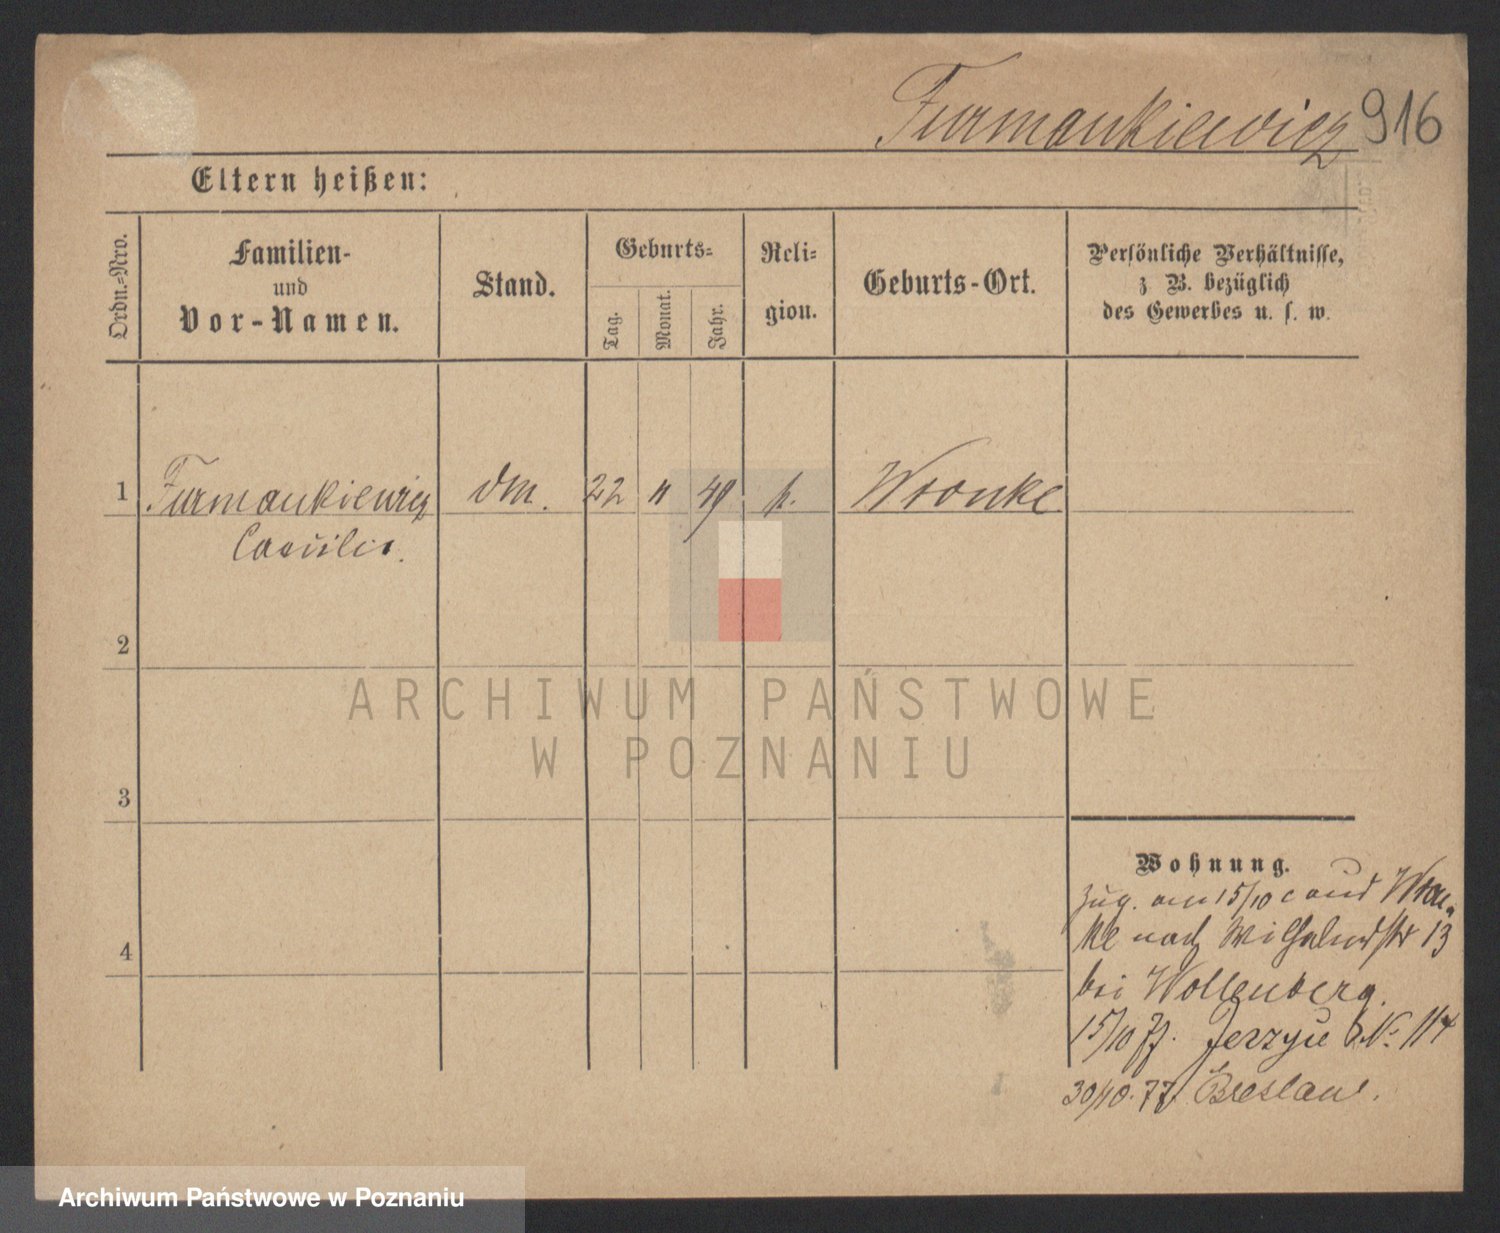 Furmankiewicz 916
Eltern heißen:
Ordn.=Nro.
Familien-
und
Vor-Namen.
Stand.
Geburts=
Tag.
Monat.
Jahr.
Reli=
gion.
Geburts-Ort.
Persönliche Verhältnisse,
z B. bezüglich
des Gewerbes u. s. w.
1 Furmankiewicz dm. 22 11 49 k. Wronke
2
ARCHIWUM PAŃSTWOWE
W POZNANIU
3
Wohnung.
Zug. am 15/10 Wron-
ke nach 13
4
bei Wollenberg.
15/10 77. Jerzyce No 114
30/10. 77 Breslau.
Archiwum Państwowe w Poznaniu